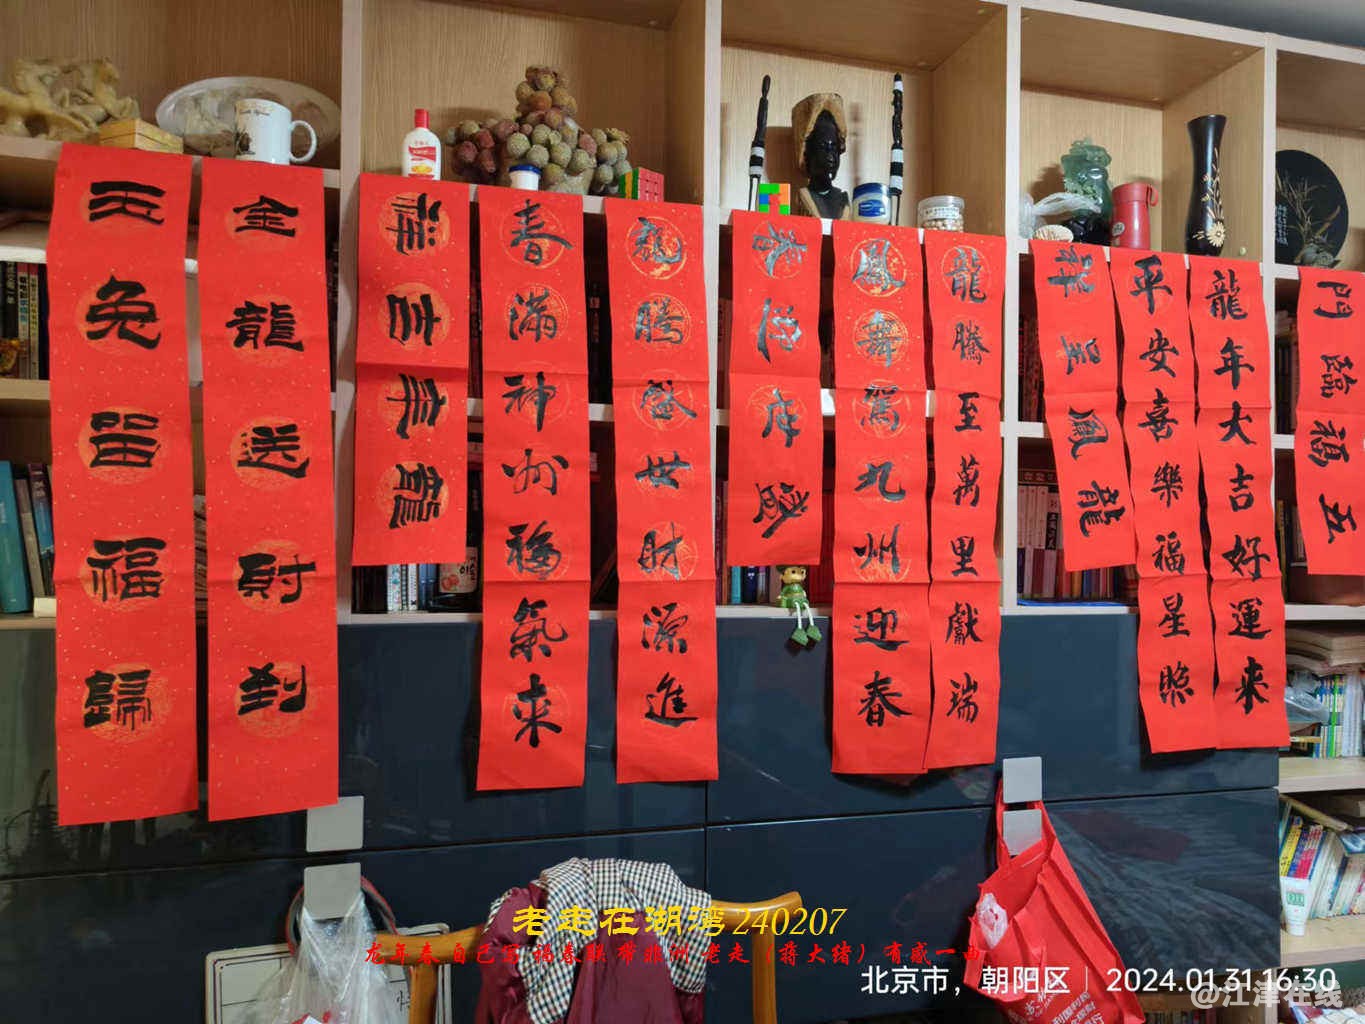 玉兔留福歸
金龍送財到
龍年吉祥
春滿神州福氣来
龍騰盛世財源進
鳳舞駕九州迎春
龍騰至萬里獻瑞
龍鳳呈祥
平安喜樂福星照
龍年大吉好運来
五福臨門
老走在湖湾240207
龙年春自己写福春联带非洲 老走（蒋大绪）有感一曲
北京市，朝阳区 | 2024.01.31 16:30
@江津在线